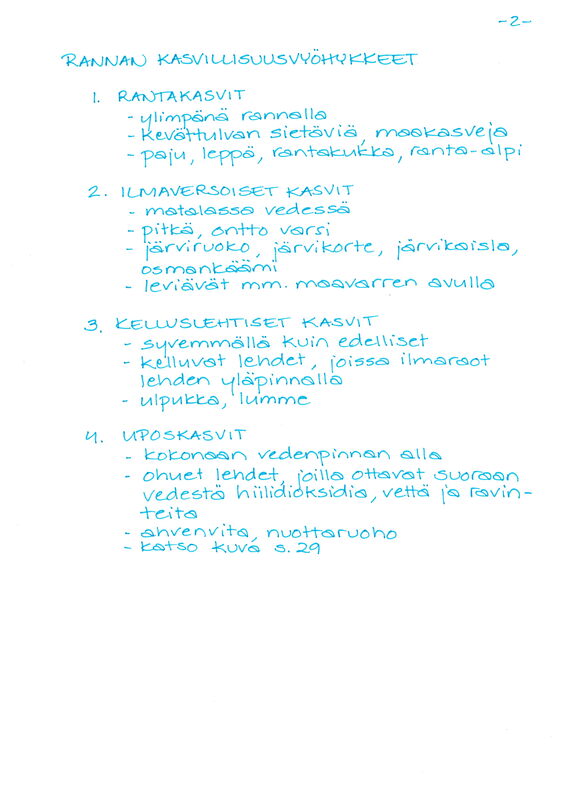 -2-
RANNAN KASVILLISUUSVYÖHYKKEET
1. RANTAKASVIT
- ylimpänä rannalla
- kevättulvan sietäviä, maakasveja
- paju, leppä, rantakukka, ranta-alpi
2. ILMAVERSOISET KASVIT
- matalassa vedessä
- pitkä, ontto varsi
- järviruoko, järvikorte, järvikaisla,
osmankäämi
- leviävät mm. maavarren avulla
3. KELLUSLEHTISET KASVIT
- syvemmällä kuin edelliset
- kelluvat lehdet, joissa ilmaraot
lehden yläpinnalla
- ulpukka, lumme
4. UPOSKASVIT
- kokonaan vedenpinnan alla
- ohuet lehdet, joilla ottavat suoraan
vedestä hiilidioksidia, vettä ja ravin-
teita
- ahvenvita, nuottaruoho
- katso kuva s. 29